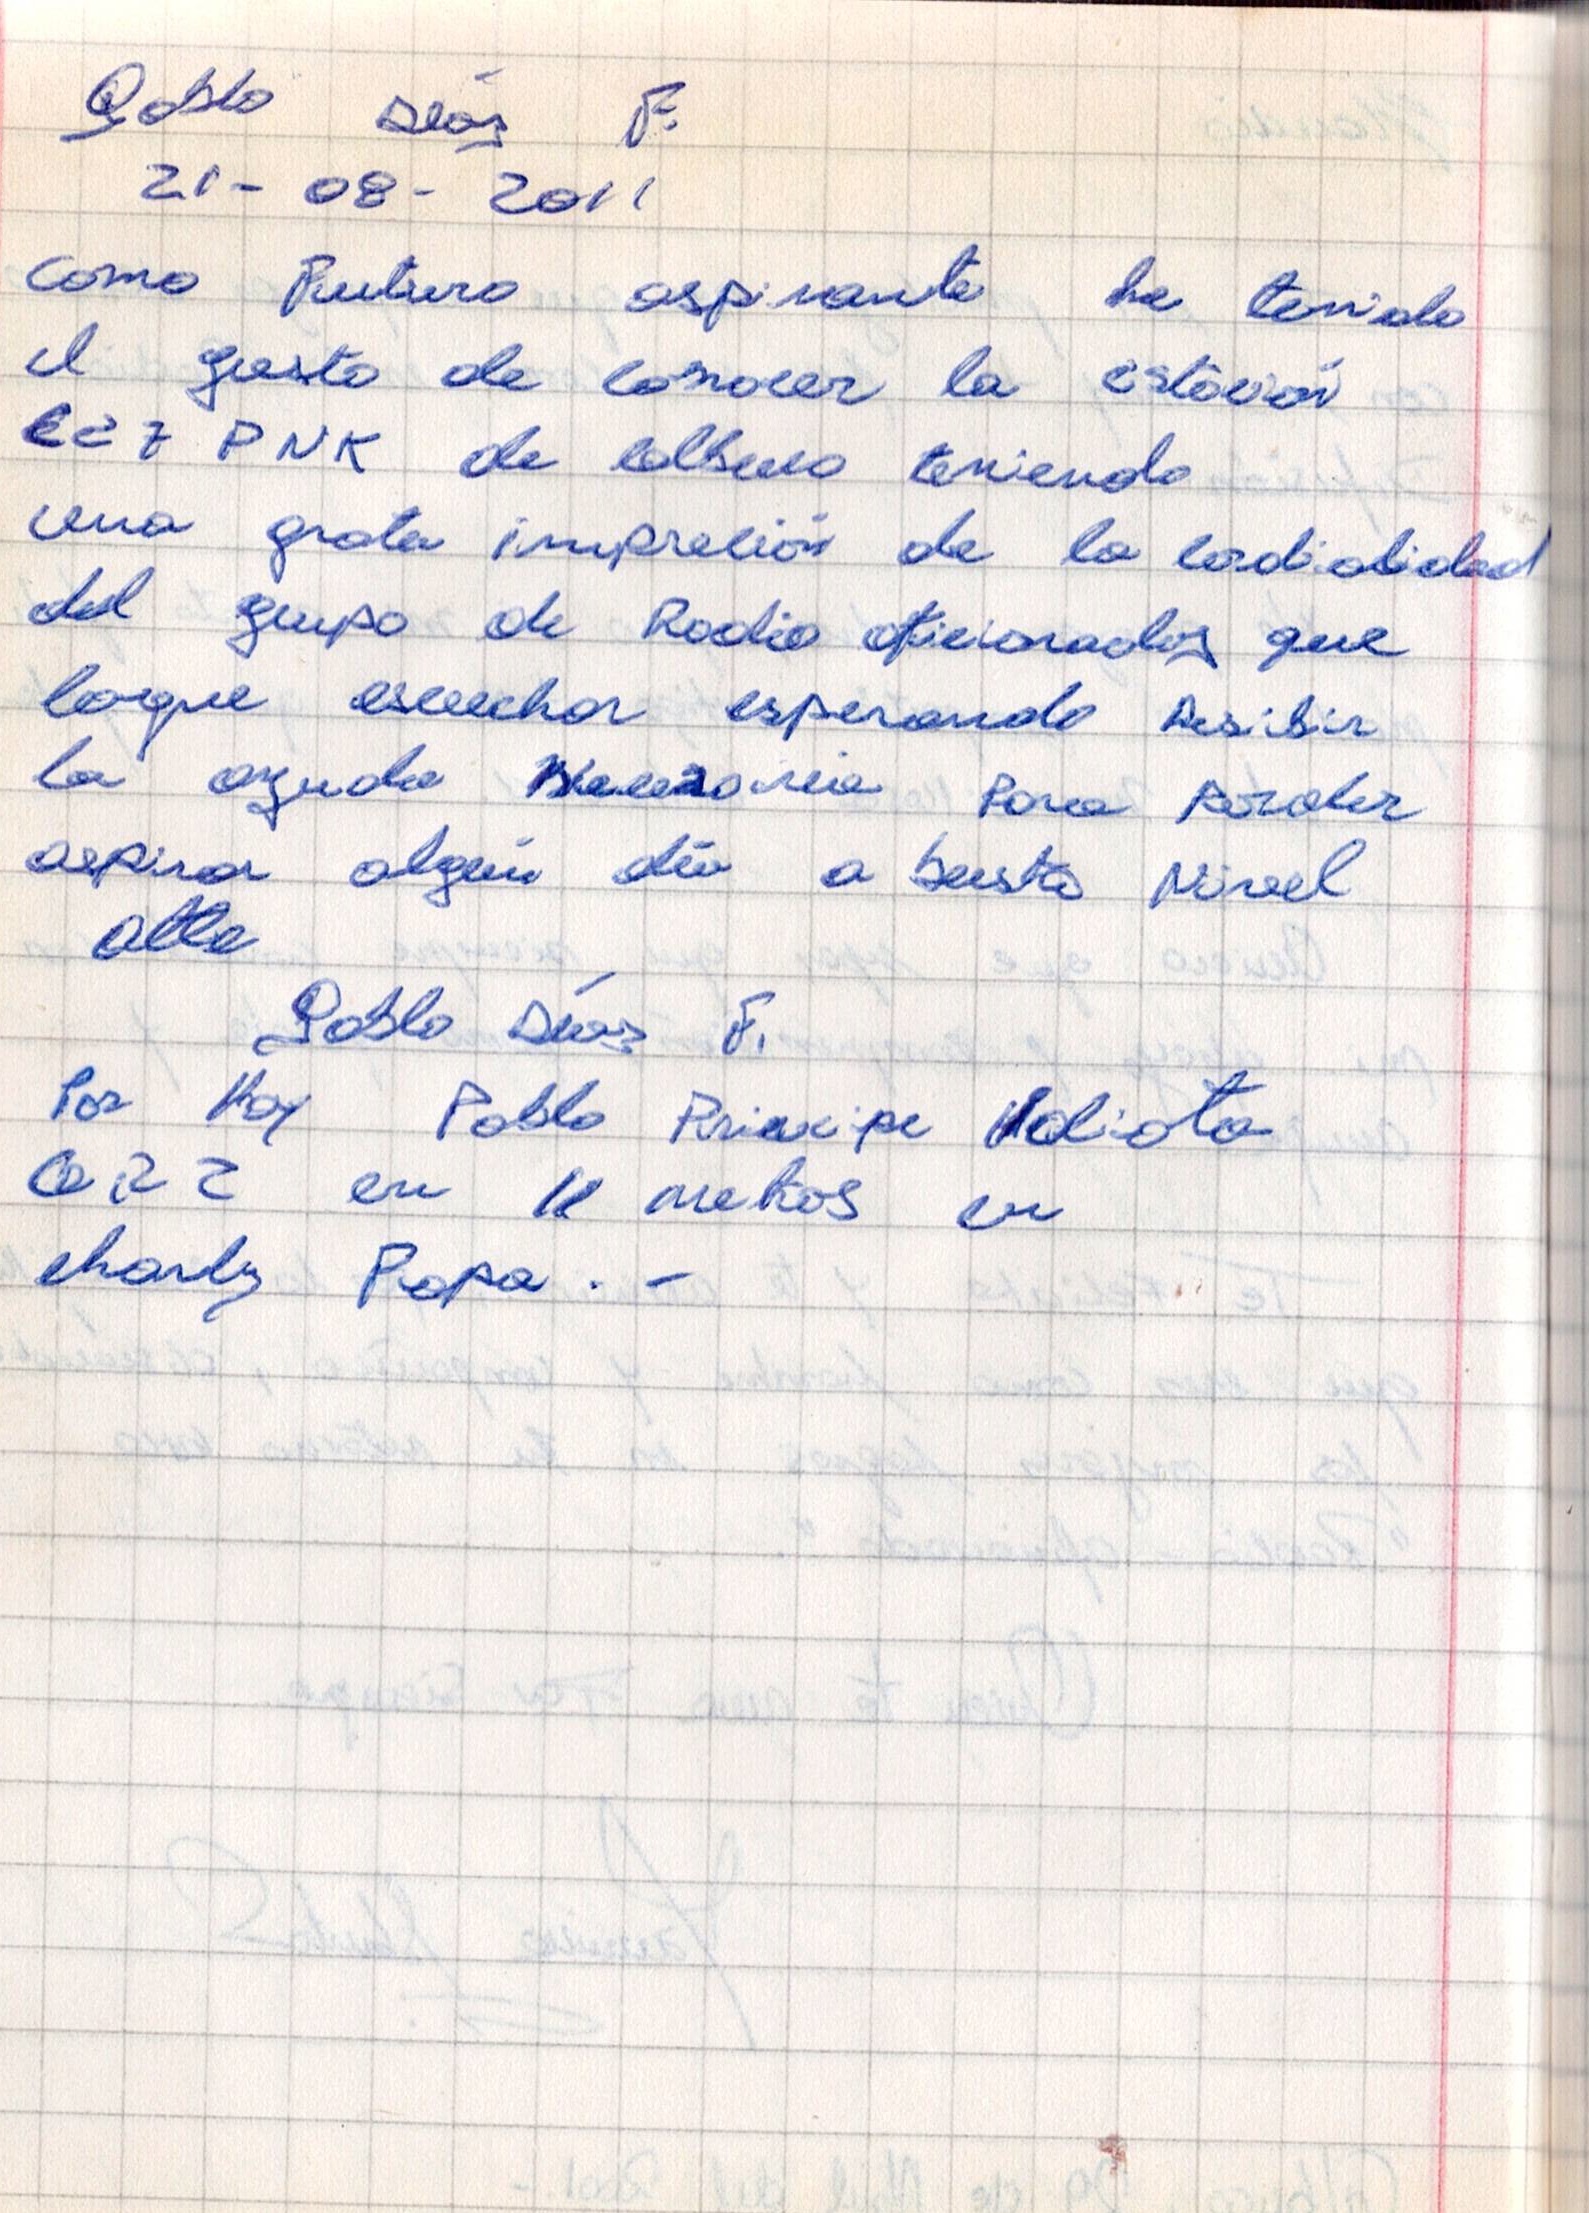 Pablo Díaz F.
21-08-2011
como Futuro aspirante he tenido
el gusto de conocer la estación
CE7PNK de Calbuco teniendo
una grata impreción de la cordialidad
del grupo de Radio aficionados que
logre escuchar esperando Resibir
la ayuda Para Poder
aspirar algún día a Nivel
atte
Pablo Díaz F.
Por Hoy Pablo Principe
QRZ en 11 metros en
charly Papa . -